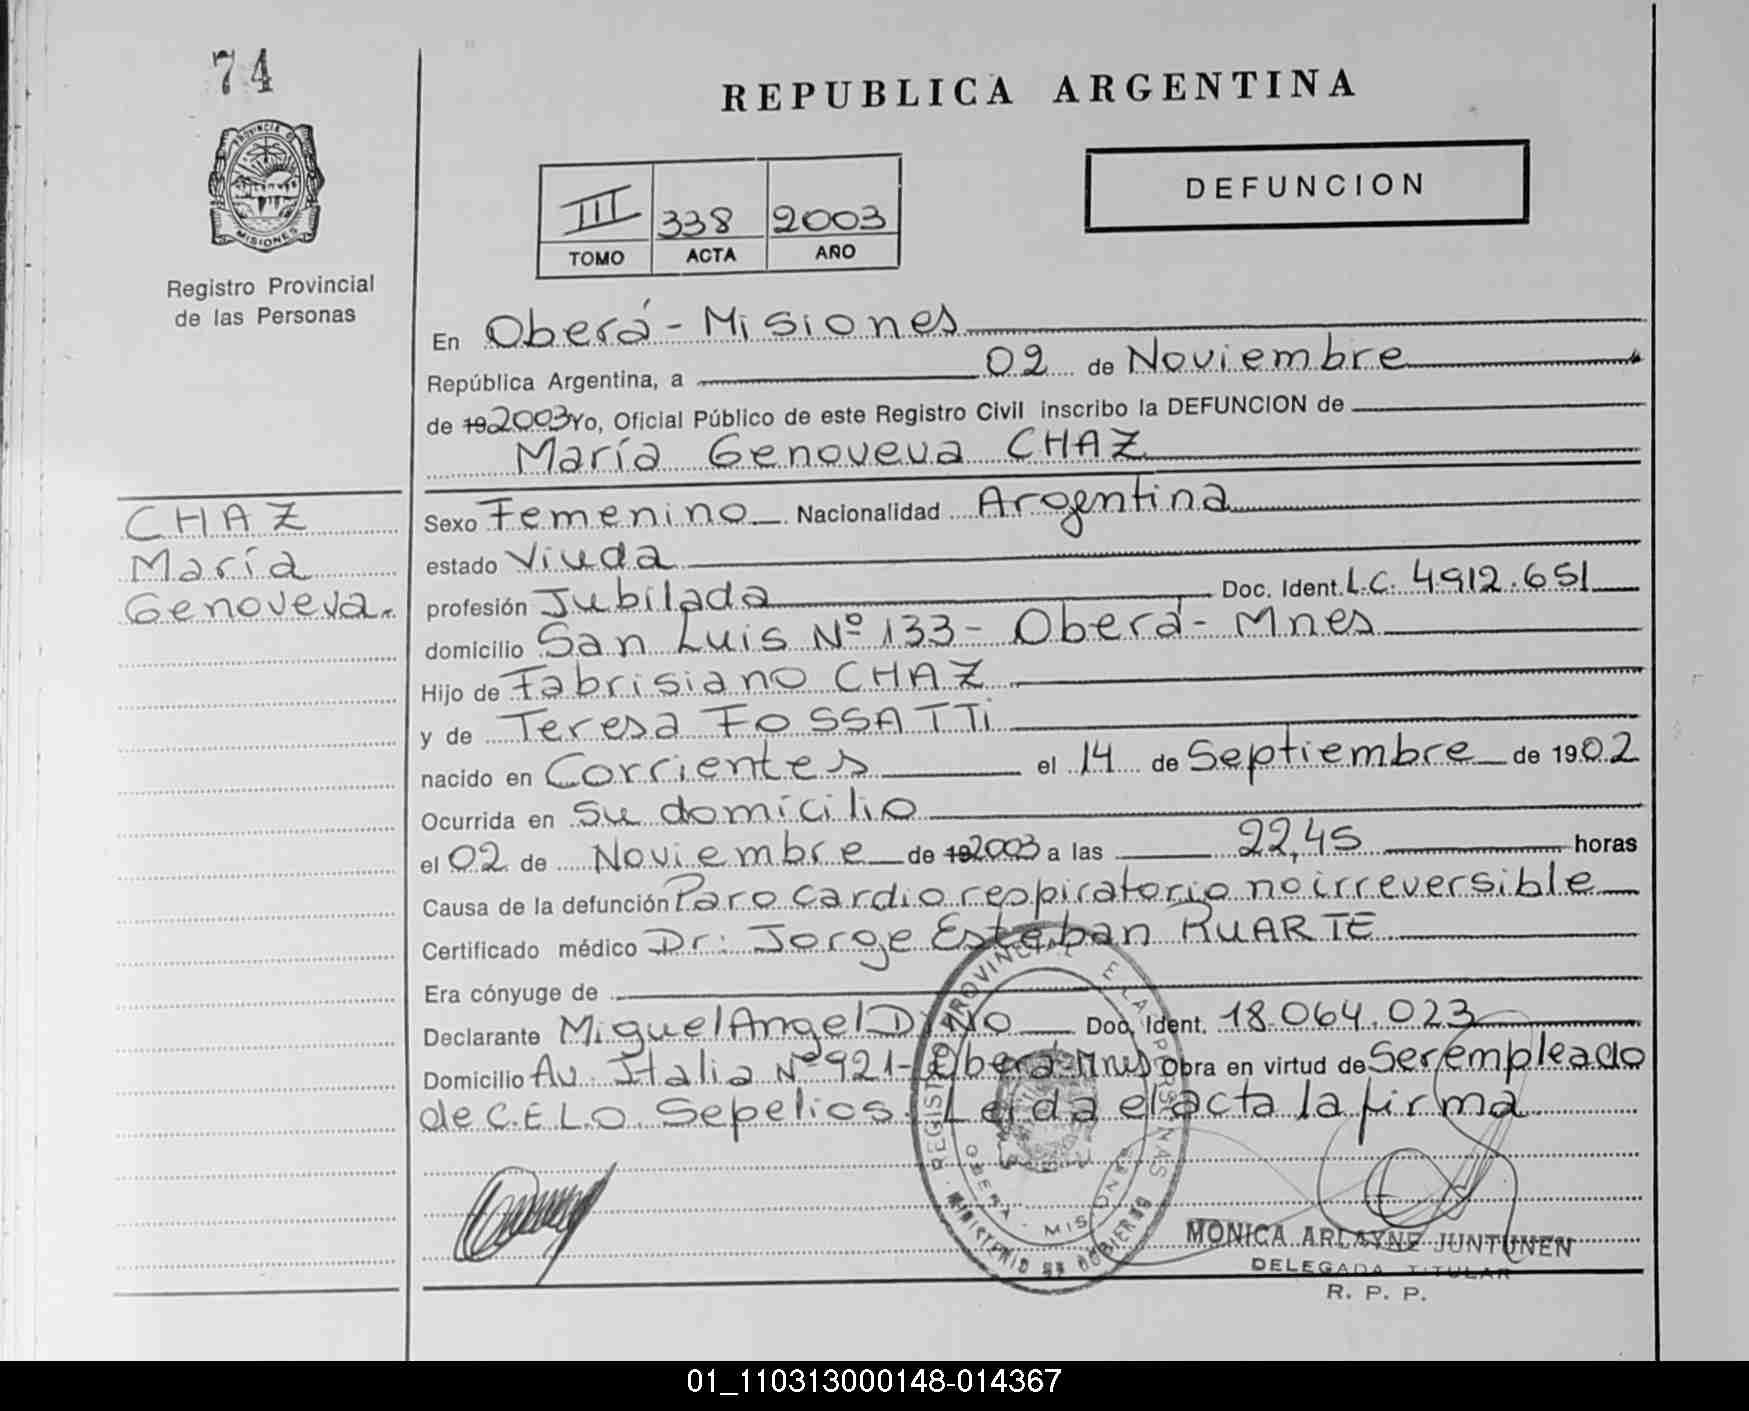 74
REPUBLICA ARGENTINA
PROVINCIA DE
MISIONES
Registro Provincial
de las Personas
III 338 2003
TOMO ACTA AÑO
DEFUNCION
En Oberá - Misiones
República Argentina, a 02 de Noviembre
de 19 2003 Yo, Oficial Público de este Registro Civil inscribo la DEFUNCION de
María Genoveva CHAZ
CHAZ
María
Genoveva.
Sexo Femenino Nacionalidad Argentina
estado Viuda
profesión Jubilada Doc. Ident. L.C. 4.912.651
domicilio San Luis Nº 133 - Oberá - Mnes
Hijo de Fabrisiano CHAZ
y de Teresa FOSSATTi
nacido en Corrientes el 14 de Septiembre de 1902
Ocurrida en su domicilio
el 02 de Noviembre de 19 2003 a las 22,45 horas
Causa de la defunción Paro cardio respiratorio no irreversible
Certificado médico Dr: Jorge Esteban RUARTE
Era cónyuge de
Declarante Miguel Angel Doc. Ident. 18.064.023
Domicilio Av. Italia Nº 921 - Oberá - Mnes Obra en virtud de Ser empleado
de C.E.L.O. Sepelios. Leída el acta la firma
REGISTRO PROVINCIAL DE LAS PERSONAS
OBERA - MISIONES
MINISTERIO DE GOBIERNO
MONICA ARLAYNE JUNTUNEN
DELEGADA TITULAR
R. P. P.
01_110313000148-014367